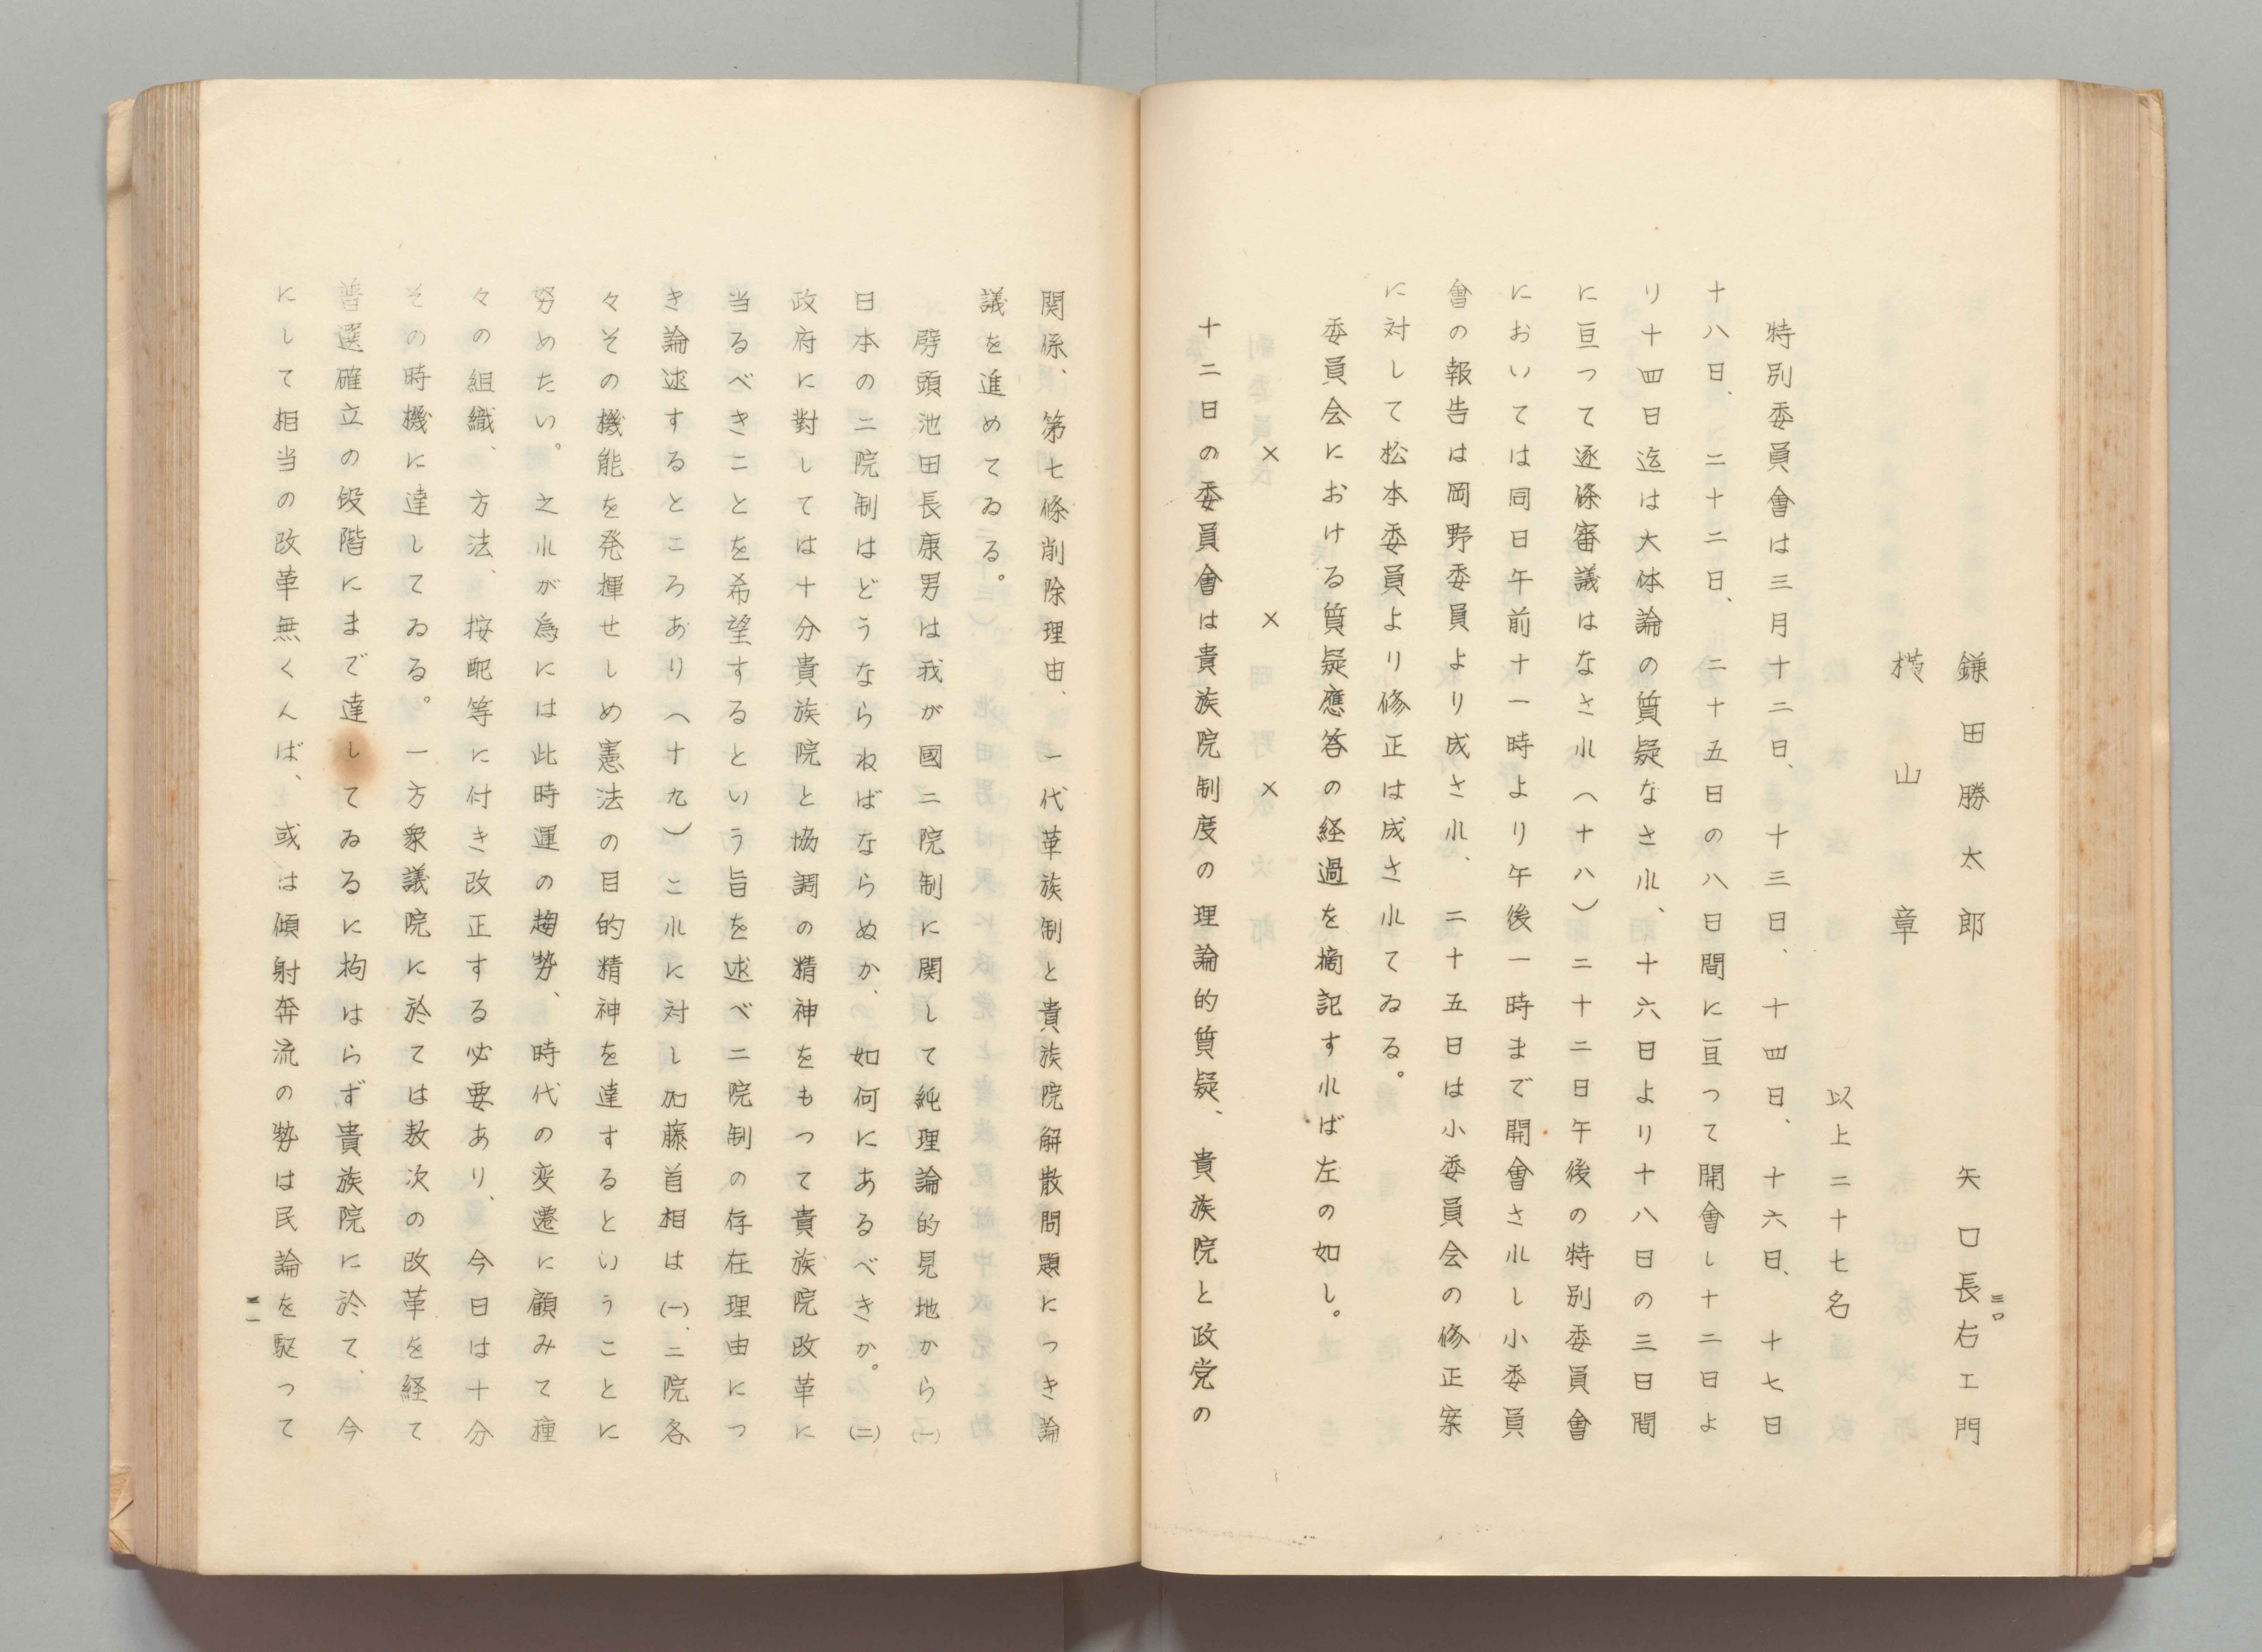 鎌田勝太郎　矢口長右エ門
横山章
以上二十七名
特別委員會は三月十二日、十三日、十四日、十六日、十七日
十八日、二十二日、二十五日の八日間に亘って開會し十二日よ
り十四日迄は大体論の質疑なされ、十六日より十八日の三日間
に亘って逐條審議はなされ（十八）二十二日午後の特別委員會
においては同日午前十一時より午後一時まで開會されし小委員
會の報告は岡野委員より成され、二十五日は小委員会の修正案
に対して松本委員より修正は成されてゐる。
委員会における質疑應答の経過を摘記すれば左の如し。
×　×　×
十二日の委員會は貴族院制度の理論的質疑、貴族院と政党の
三〇
関係、第七條削除理由、一代華族制と貴族院解散問題につき論
議を進めてゐる。
劈頭池田長康男は我が國二院制に関して純理論的見地から㈠
日本の二院制はどうならねばならぬか、如何にあるべきか。㈡
政府に對しては十分貴族院と協調の精神をもって貴族院改革に
当るべきことを希望するという旨を述べ二院制の存在理由につ
き論述するところあり（十九）これに対し加藤首相は㈠、二院各
々その機能を発揮せしめ憲法の目的精神を達するということに
努めたい。之れが為には此時運の趨勢、時代の変遷に顧みて種
々の組織、方法、按配等に付き改正する必要あり、今日は十分
その時機に達してゐる。一方衆議院に於ては数次の改革を経て
普選確立の段階にまで達してゐるに拘はらず貴族院に於て、今
にして相当の改革無くんば、或は傾射奔流の勢は民論を駆って
三一